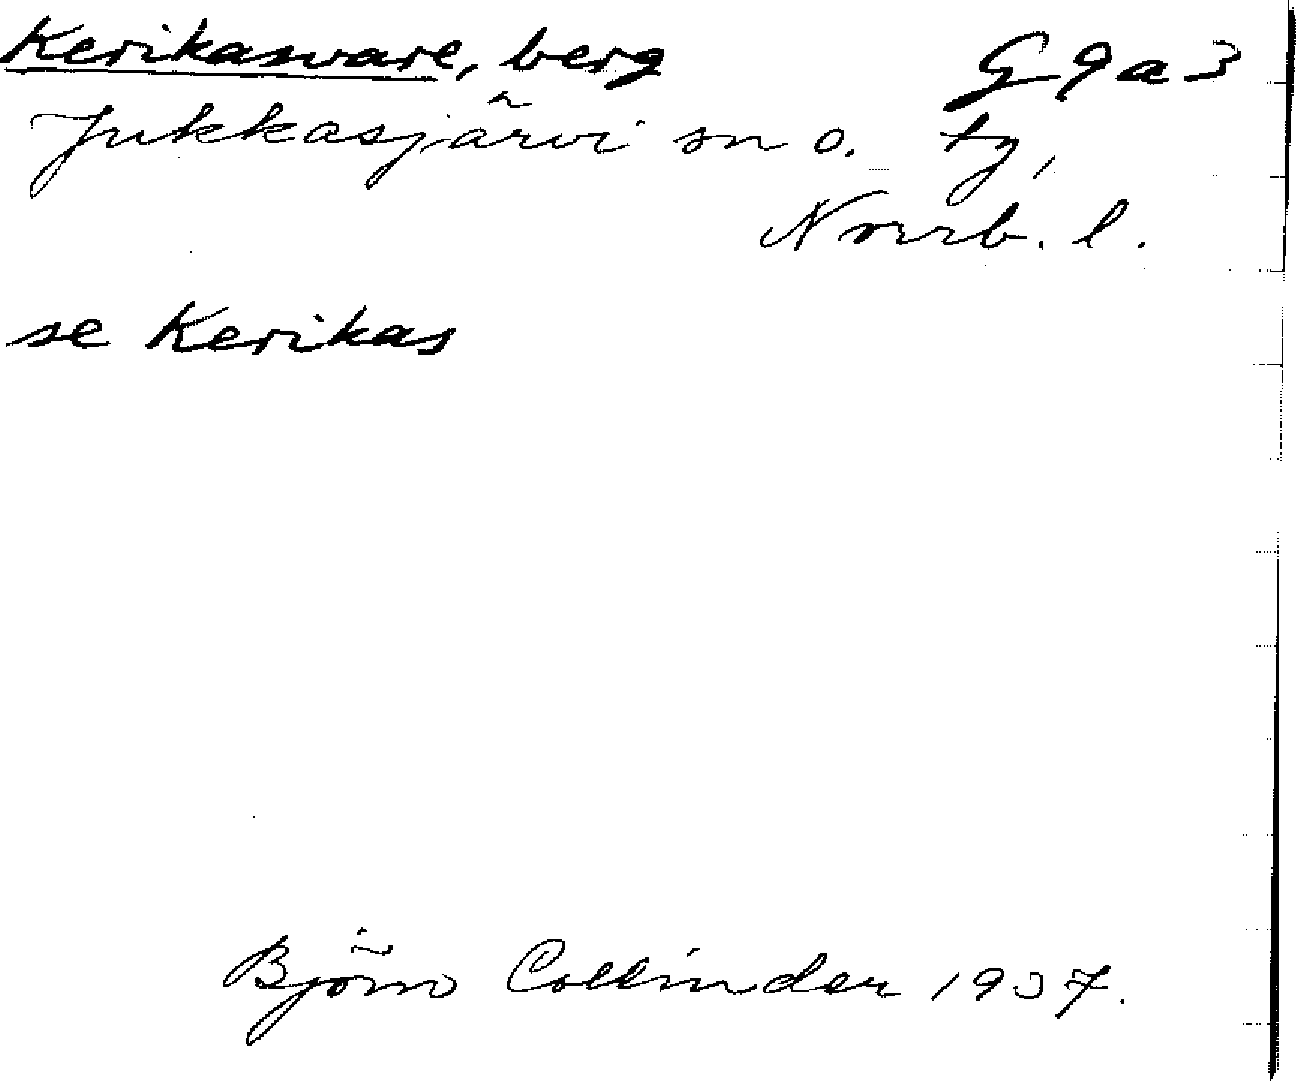 Kerikasvare, berg G 9 a 3
Jukkasjärvi sn o. tg,
Norrb. l.
se Kerikas
Björn Collinder 1937.